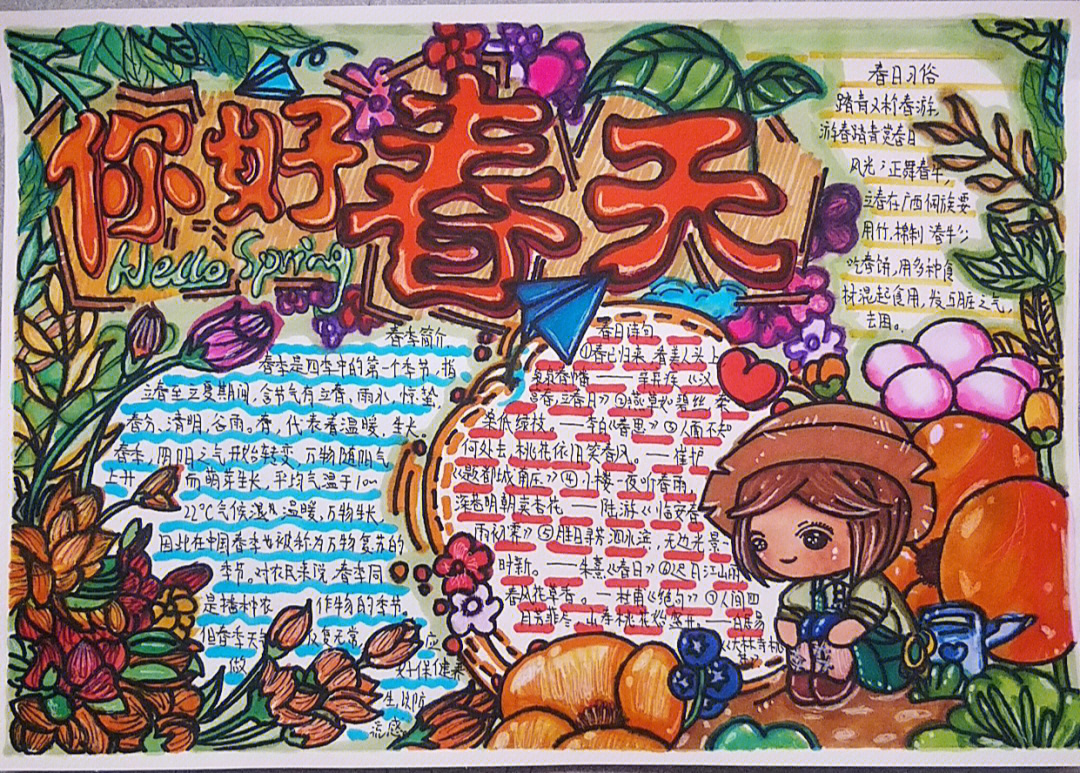 你好春天
Hello Spring
春季简介
春季是四季中的第一个季节,指
立春至立夏期间,含节气有立春、雨水、惊蛰、
春分、清明、谷雨。春,代表着温暖、生长。
春季,阴阳之气开始转变,万物随阳气
上升 而萌芽生长,平均气温于10~
22℃气候湿 温暖,万物生长,
因此在中国春季也被称为万物复苏的
季节。对农民来说,春季同
是播种农 作物的季节,
但春季天气 复无常, 应
做 好保健养
生,预防
流感。
春日诗句
①春已归来,看美人头上,
袅袅春幡——辛弃疾《汉
宫春·立春日》②燕草如碧丝,秦
桑低绿枝。——李白《春思》③人面不知
何处去,桃花依旧笑春风。——崔护
《题都城南庄》④小楼一夜听春雨,
深巷明朝卖杏花——陆游《临安春
雨初霁》⑤胜日寻芳泗水滨,无边光景一
时新。——朱熹《春日》⑥迟日江山丽
春风花草香。——杜甫《绝句》⑦人间四
月芳菲尽,山寺桃花始盛开。——白居易
《大林寺桃
花》
春日习俗
踏青又称春游,
游春踏青赏春日
风光;正舞春牛,
立春在广西侗族要
用竹、棉制"春牛";
吃春饼,用多种食
材混起食用,发五脏之气,
去困。